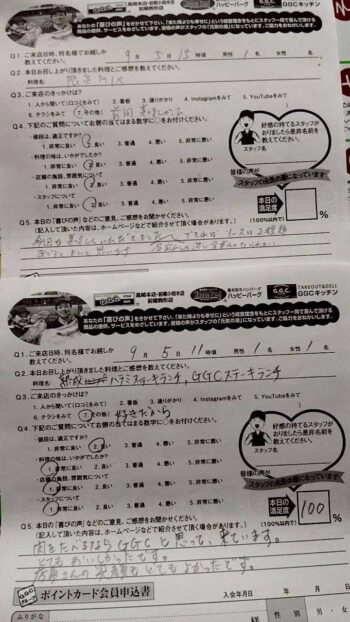 高崎本店・前橋小相木店
前橋駒形店
ハッピーバーグ
GGCキッチン
あなたの『喜びの声』をきかせて下さい。「来た時よりも幸せに」という経営理念をもとにスタッフ一同で喜んで頂ける
商品の提供、サービスをめざしています。皆様の声がスタッフの「元気の源」になっています。ご協力をおねがいします。
Q1. ご来店日時、何名様でお越しか
教えてください。
9月 5日 15時頃 男性 1名 女性 名
Q2. 本日お召し上がり頂きました料理とご感想を教えてください。
料理名
Q3. ご来店のきっかけは?
1. 人から聞いて(口コミをみて) 2. 看板 3. 通りがかり 4. Instagramをみて 5. YouTubeをみて
6. チラシをみて 7. その他(
Q4. 下記のご質問についてお側の当てはまる数字に○をお付けください。
・値段は、適正ですか?
1. 非常に良い 2. 良い 3. 普通 4. 悪い 5. 非常に悪い
・料理の味は、いかがでしたか?
1. 非常に良い 2. 良い 3. 普通 4. 悪い 5. 非常に悪い
・店舗の施設、雰囲気について
1. 非常に良い 2. 良い 3. 普通 4. 悪い 5. 非常に悪い
・スタッフについて
1. 非常に良い 2. 良い 3. 普通 4. 悪い 5. 非常に悪い
好感の持てるスタッフが
おりましたら是非名前を
教えてください。
スタッフ名
皆様の声が
スタッフの元気の源になっています
本日の
満足度
(100%以内で)
%
Q5. 本日の「喜びの声」などのご意見、ご感想をお聞かせください。
(記入して頂いた内容は、ホームページなどで紹介させて頂く場合があります。)
高崎本店・前橋小相木店
前橋駒形店
ハッピーバーグ
TAKEOUT&DELI
GGCキッチン
あなたの『喜びの声』をきかせて下さい。「来た時よりも幸せに」という経営理念をもとにスタッフ一同で喜んで頂ける
商品の提供、サービスをめざしています。皆様の声がスタッフの「元気の源」になっています。ご協力をおねがいします。
Q1. ご来店日時、何名様でお越しか
教えてください。
9月 5日 11時頃 男性 1名 女性 1名
Q2. 本日お召し上がり頂きました料理とご感想を教えてください。
料理名 ハラミステーキランチ, GGCステーキランチ
Q3. ご来店のきっかけは?
1. 人から聞いて(口コミをみて) 2. 看板 3. 通りがかり 4. Instagramをみて 5. YouTubeをみて
6. チラシをみて 7. その他( 好きだから
Q4. 下記のご質問についてお側の当てはまる数字に○をお付けください。
・値段は、適正ですか?
1. 非常に良い 2. 良い 3. 普通 4. 悪い 5. 非常に悪い
・料理の味は、いかがでしたか?
1. 非常に良い 2. 良い 3. 普通 4. 悪い 5. 非常に悪い
・店舗の施設、雰囲気について
1. 非常に良い 2. 良い 3. 普通 4. 悪い 5. 非常に悪い
・スタッフについて
1. 非常に良い 2. 良い 3. 普通 4. 悪い 5. 非常に悪い
好感の持てるスタッフが
おりましたら是非名前を
教えてください。
スタッフ名
皆様の声が
スタッフの元気の源になっています
本日の
満足度
(100%以内で)
100 %
Q5. 本日の「喜びの声」などのご意見、ご感想をお聞かせください。
(記入して頂いた内容は、ホームページなどで紹介させて頂く場合があります。)
肉をたべるならGGCと思って、来ています。
とてもおいしかったです。
店員さんの笑顔もとてもよかったです。
G.G.C.
グループ
ポイントカード会員申込書
入会年月日 年 月 日
ふりがな
性別
男・女